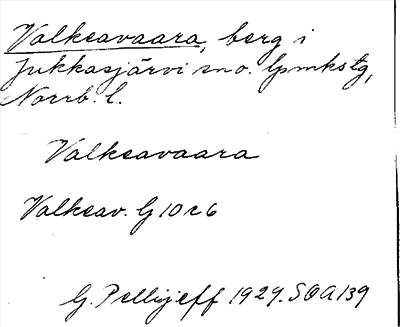 Valkeavaara, berg i
Jukkasjärvi sn o. lpmkstg,
Norrb. l.
Valkeavaara
Valkeav. G 10 c 6
G. Pellijeff 1929. SOA 139